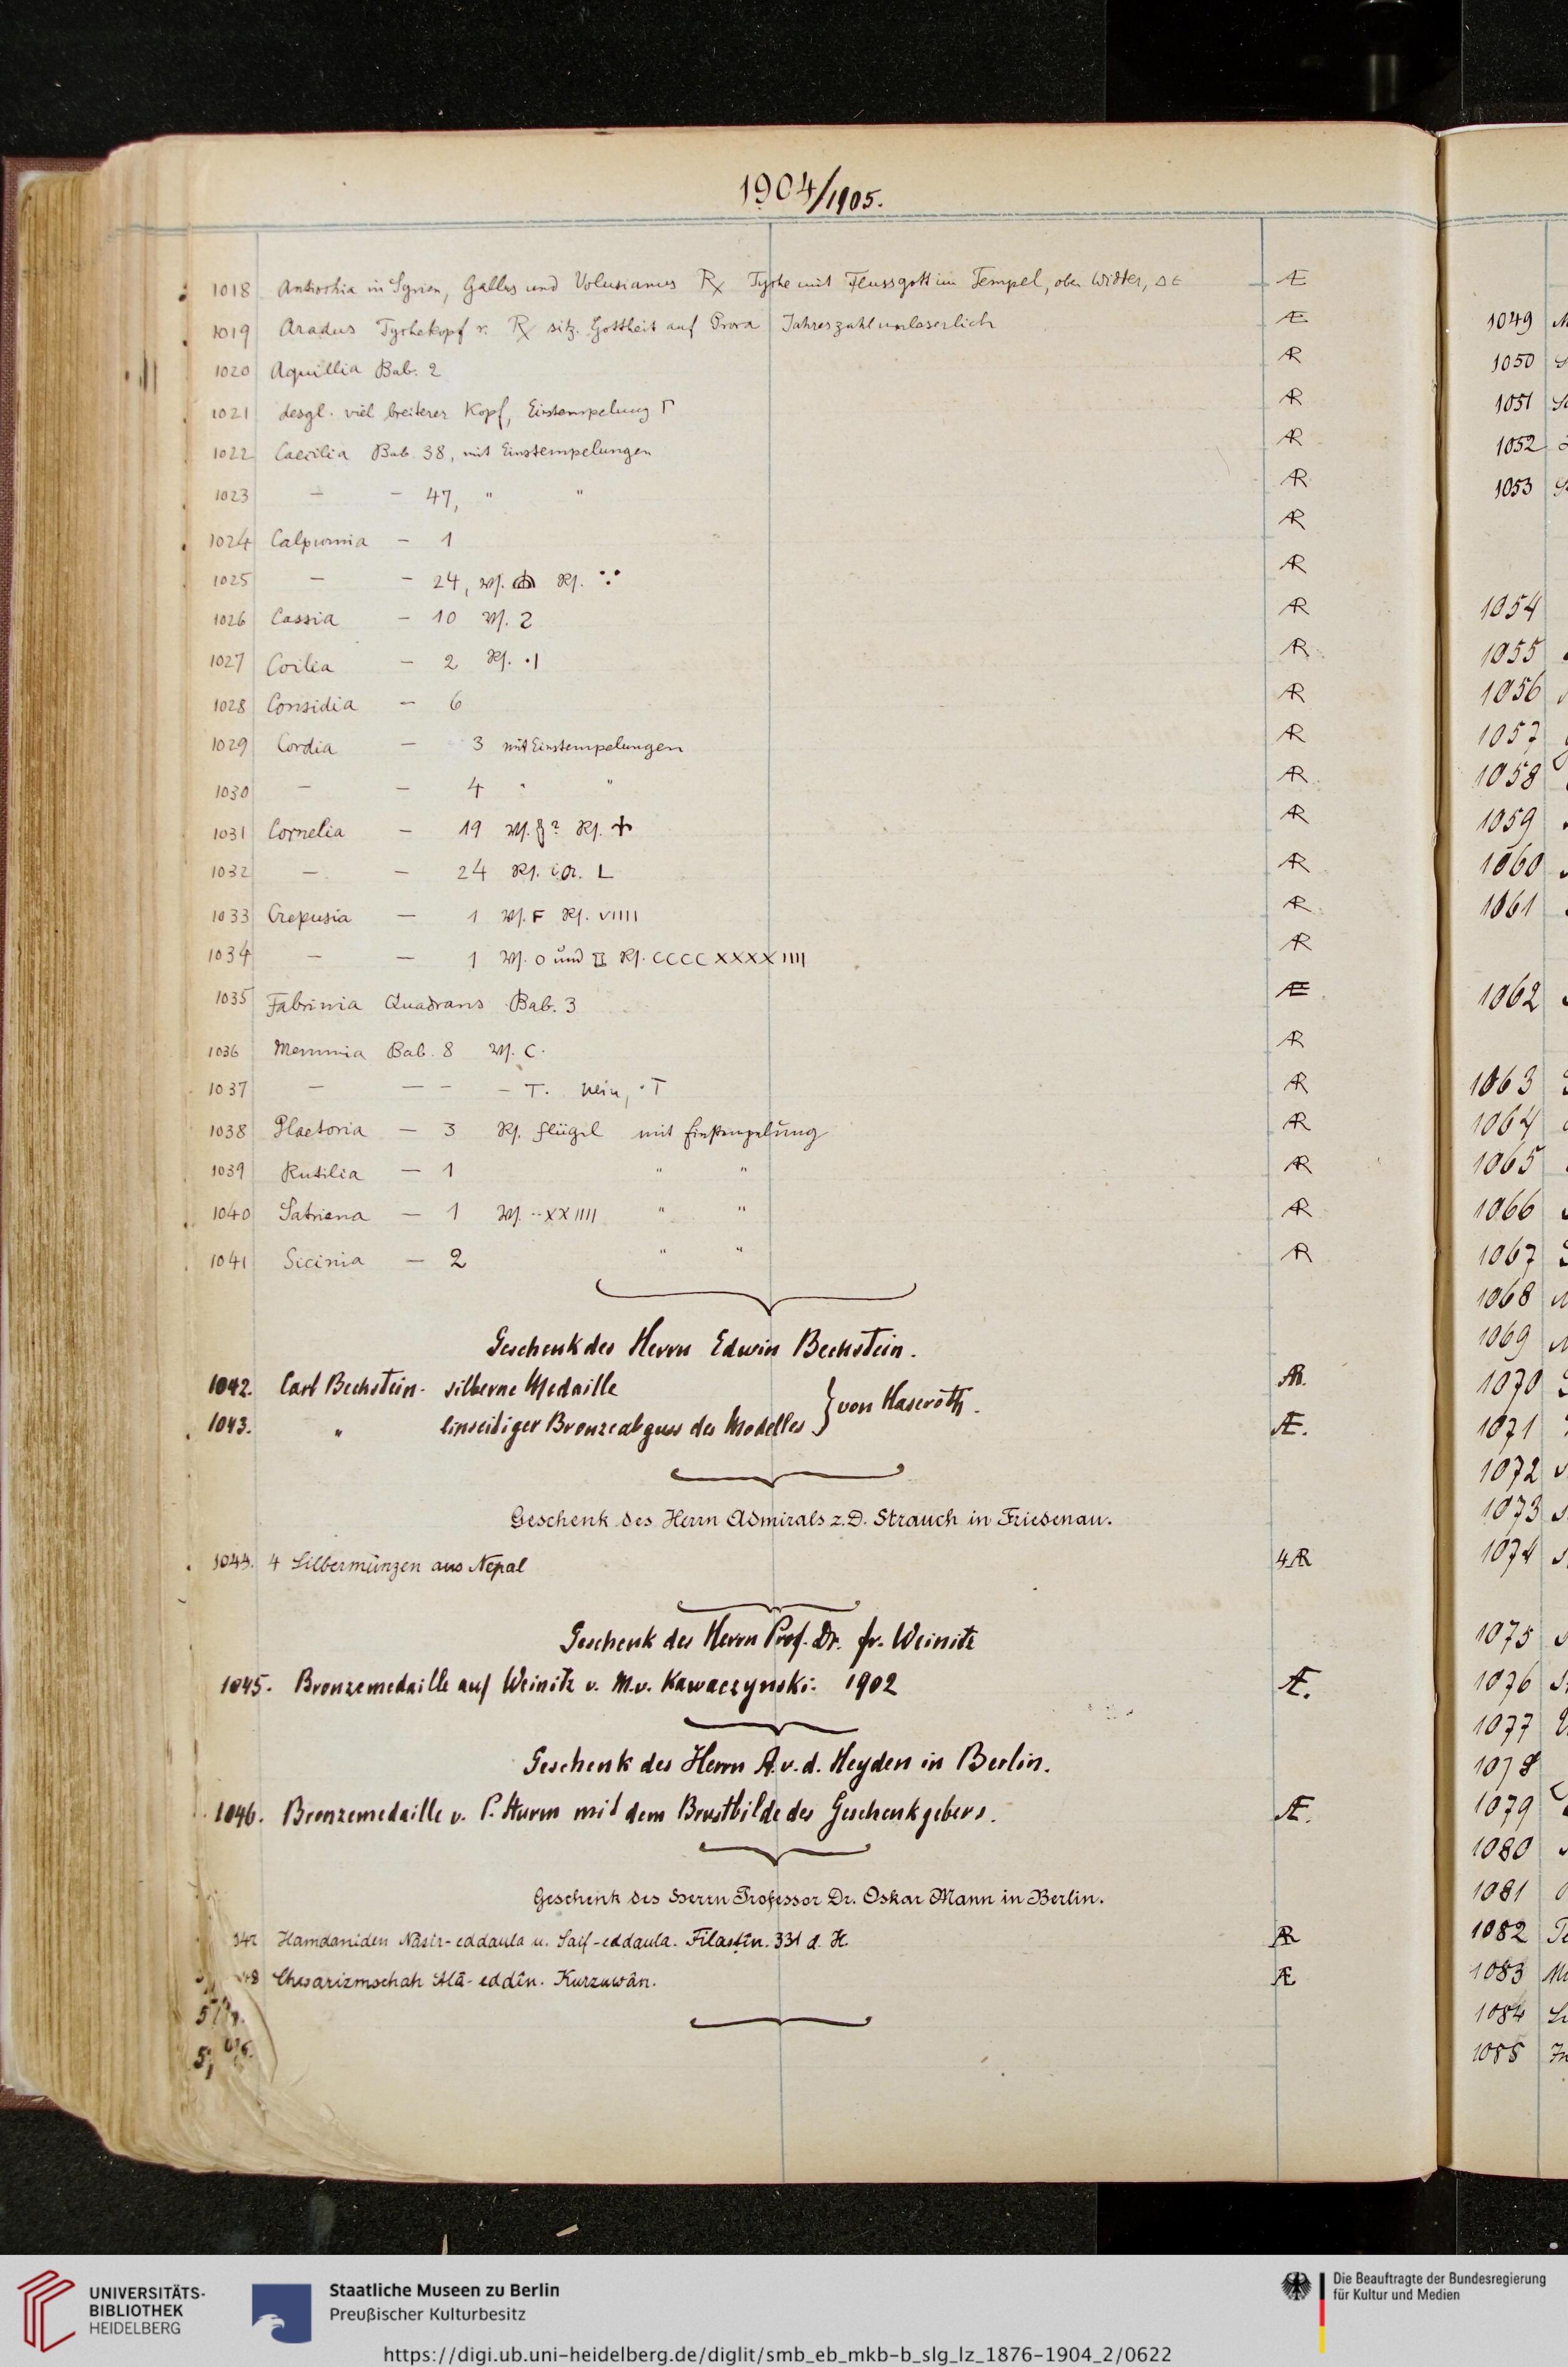 1904/1905.
1018 Antiochia in Syrien, Gallus und Volusianus Rx Tyche mit Flussgott im Tempel, oben Widder, ΔΕ Æ
1019 Aradus Tychekopf r. Rx sitz. Gottheit auf Prora Jahreszahl unleserlich Æ
1020 Aquillia Bab. 2 AR
1021 desgl. viel breiterer Kopf, Einstempelung Γ AR
1022 Caecilia Bab. 38, mit Einstempelungen AR
1023 — — 47, " " AR
1024 Calpurnia — 1 AR
1025 — — 24, Vs. Rs. AR
1026 Cassia — 10 Vs. 2 AR
1027 Coilia — 2 Rs. ·I AR
1028 Considia — 6 AR
1029 Cordia — 3 mit Einstempelungen AR
1030 — — 4 " " AR
1031 Cornelia — 19 Vs. ? Rs. + AR
1032 — — 24 Rs. L AR
1033 Crepusia — 1 Vs. F Rs. VIIII AR
1034 — — 1 Vs. O und II Rs. CCCCXXXXIIII AR
1035 Fabrinia Quadrans Bab. 3 Æ
1036 Memmia Bab. 8 Vs. C· AR
1037 — — – – T. Nein, ·T AR
1038 Plaetoria — 3 Rs. Flügel mit Einstempelung AR
1039 Rutilia — 1 " " AR
1040 Satriena — 1 Vs. ··XXIIII " " AR
1041 Sicinia — 2 " " AR
Geschenk des Herrn Edwin Bechstein.
1042. Carl Bechstein. silberne Medaille AR.
1043. " Einseitiger Bronzeabguss des Modelles } von Haseroth. Æ.
Geschenk des Herrn Admirals z. D. Strauch in Friedenau.
1044. 4 Silbermünzen aus Nepal 4 AR
Geschenk des Herrn Prof. Dr. Fr. Weinitz
1045. Bronzemedaille auf Weinitz v. M. v. Kawaczynski. 1902 Æ.
Geschenk des Herrn A. v. d. Heyden in Berlin.
1046. Bronzemedaille v. P. Sturm mit dem Brustbilde des Geschenkgebers. Æ.
Geschenk des Herrn Professor Dr. Oskar Mann in Berlin.
047 Hamdaniden Nâsir-eddaula u. Saif-eddaula. Filastîn. 331 d. H. AR
48 Chwarizmschah Alâ-eddîn. Kurzuwân. Æ
1049
1050
1051
1052
1053
1054
1055
1056
1057
1058
1059
1060
1061
1062
1063
1064
1065
1066
1067
1068
1069
1070
1071
1072
1073
1074
1075
1076
1077
1078
1079
1080
1081
1082
1083
1084
1085
UNIVERSITÄTS-
BIBLIOTHEK
HEIDELBERG
Staatliche Museen zu Berlin
Preußischer Kulturbesitz
Die Beauftragte der Bundesregierung
für Kultur und Medien
https://digi.ub.uni-heidelberg.de/diglit/smb_eb_mkb-b_slg_lz_1876-1904_2/0622